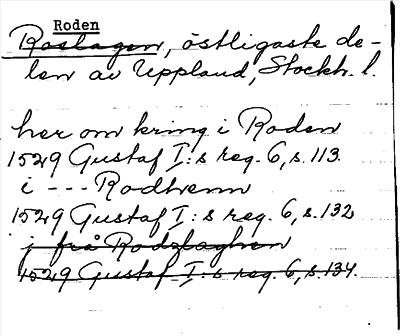 Roden
Roslagen, östligaste de-
len av Uppland, Stockh. l.
her om kring i Roden
1529 Gustaf I:s reg. 6, s. 113.
i --- Rodhenn
1529 Gustaf I:s reg. 6, s. 132
j frå Rodzlaghen
1529 Gustaf I:s reg. 6, s. 134.